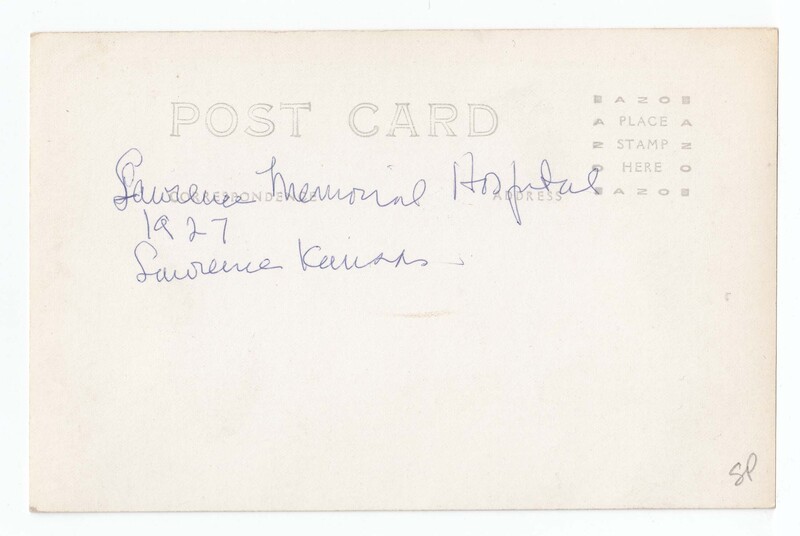 POST CARD
AZO
A PLACE A
Z STAMP Z
O HERE O
AZO
CORRESPONDENCE ADDRESS
Lawrence Memorial Hospital
1927
Lawrence Kansas
SP